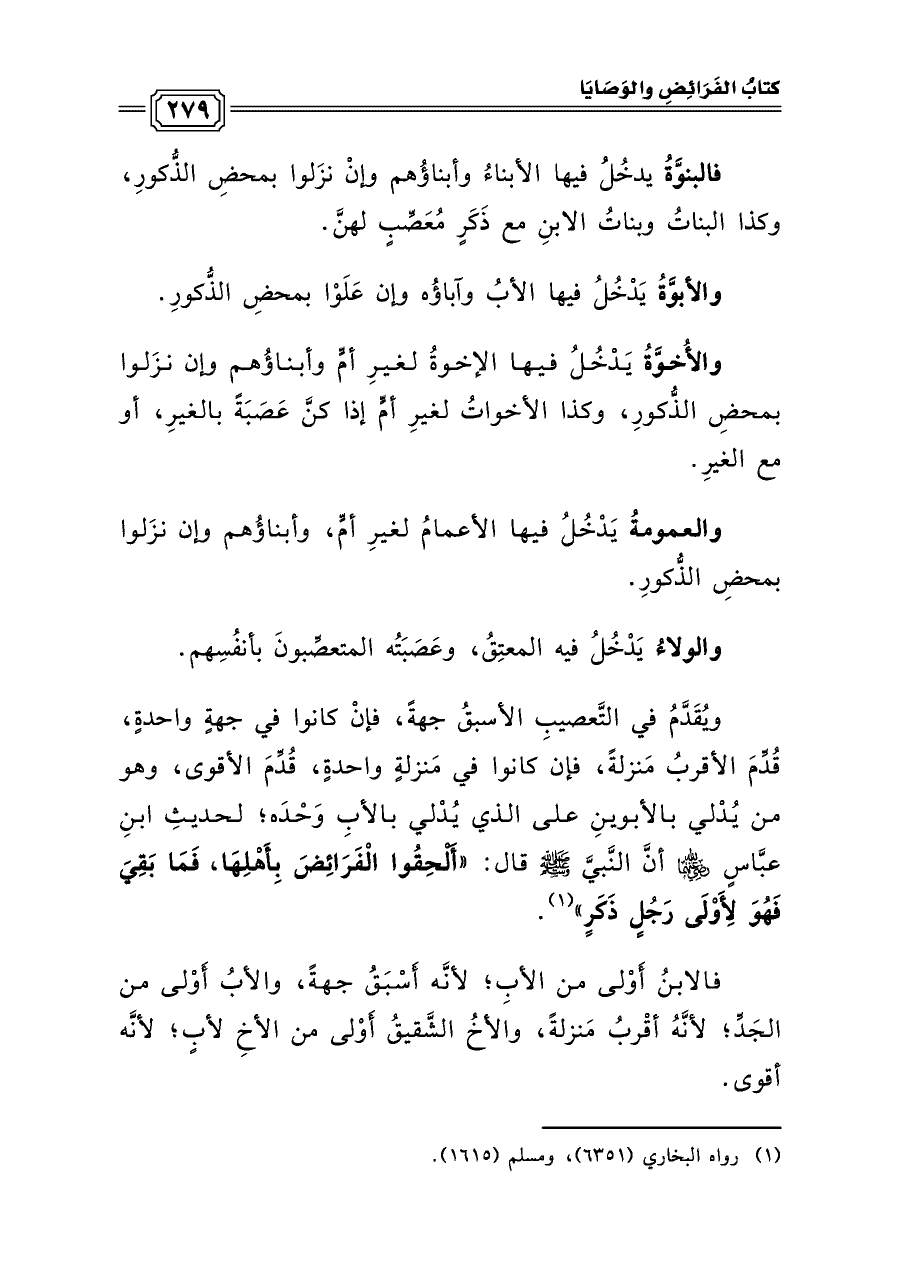 كتابُ الفَرَائِضِ والوَصَايَا
٢٧٩
فالبنوَّةُ يدخُلُ فيها الأبناءُ وأبناؤُهم وإنْ نزَلوا بمحضِ الذُّكورِ،
وكذا البناتُ وبناتُ الابنِ مع ذَكَرٍ مُعَصِّبٍ لهنَّ.
والأبوَّةُ يَدْخُلُ فيها الأبُ وآباؤُه وإن عَلَوْا بمحضِ الذُّكورِ.
والأُخوَّةُ يَدْخُلُ فيها الإخوةُ لغيرِ أمٍّ وأبناؤُهم وإن نزَلوا
بمحضِ الذُّكورِ، وكذا الأخواتُ لغيرِ أمٍّ إذا كنَّ عَصَبَةً بالغيرِ، أو
مع الغيرِ.
والعمومةُ يَدْخُلُ فيها الأعمامُ لغيرِ أمٍّ، وأبناؤُهم وإن نزَلوا
بمحضِ الذُّكورِ.
والولاءُ يَدْخُلُ فيه المعتِقُ، وعَصَبَتُه المتعصِّبونَ بأنفُسِهم.
ويُقَدَّمُ في التَّعصيبِ الأسبقُ جهةً، فإنْ كانوا في جهةٍ واحدةٍ،
قُدِّمَ الأقربُ مَنزلةً، فإن كانوا في مَنزلةٍ واحدةٍ، قُدِّمَ الأقوى، وهو
من يُدْلي بالأبوينِ على الذي يُدْلي بالأبِ وَحْدَه؛ لحديثِ ابنِ
عبَّاسٍ ﵄ أنَّ النَّبيَّ ﷺ قال: «أَلْحِقُوا الْفَرَائِضَ بِأَهْلِهَا، فَمَا بَقِيَ
فَهُوَ لِأَوْلَى رَجُلٍ ذَكَرٍ»(١).
فالابنُ أَوْلى من الأبِ؛ لأنَّه أَسْبَقُ جهةً، والأبُ أَوْلى من
الجَدِّ؛ لأنَّهُ أقْربُ مَنزلةً، والأخُ الشَّقيقُ أَوْلى من الأخِ لأبٍ؛ لأنَّه
أقوى.
(١) رواه البخاري (٦٣٥١)، ومسلم (١٦١٥).